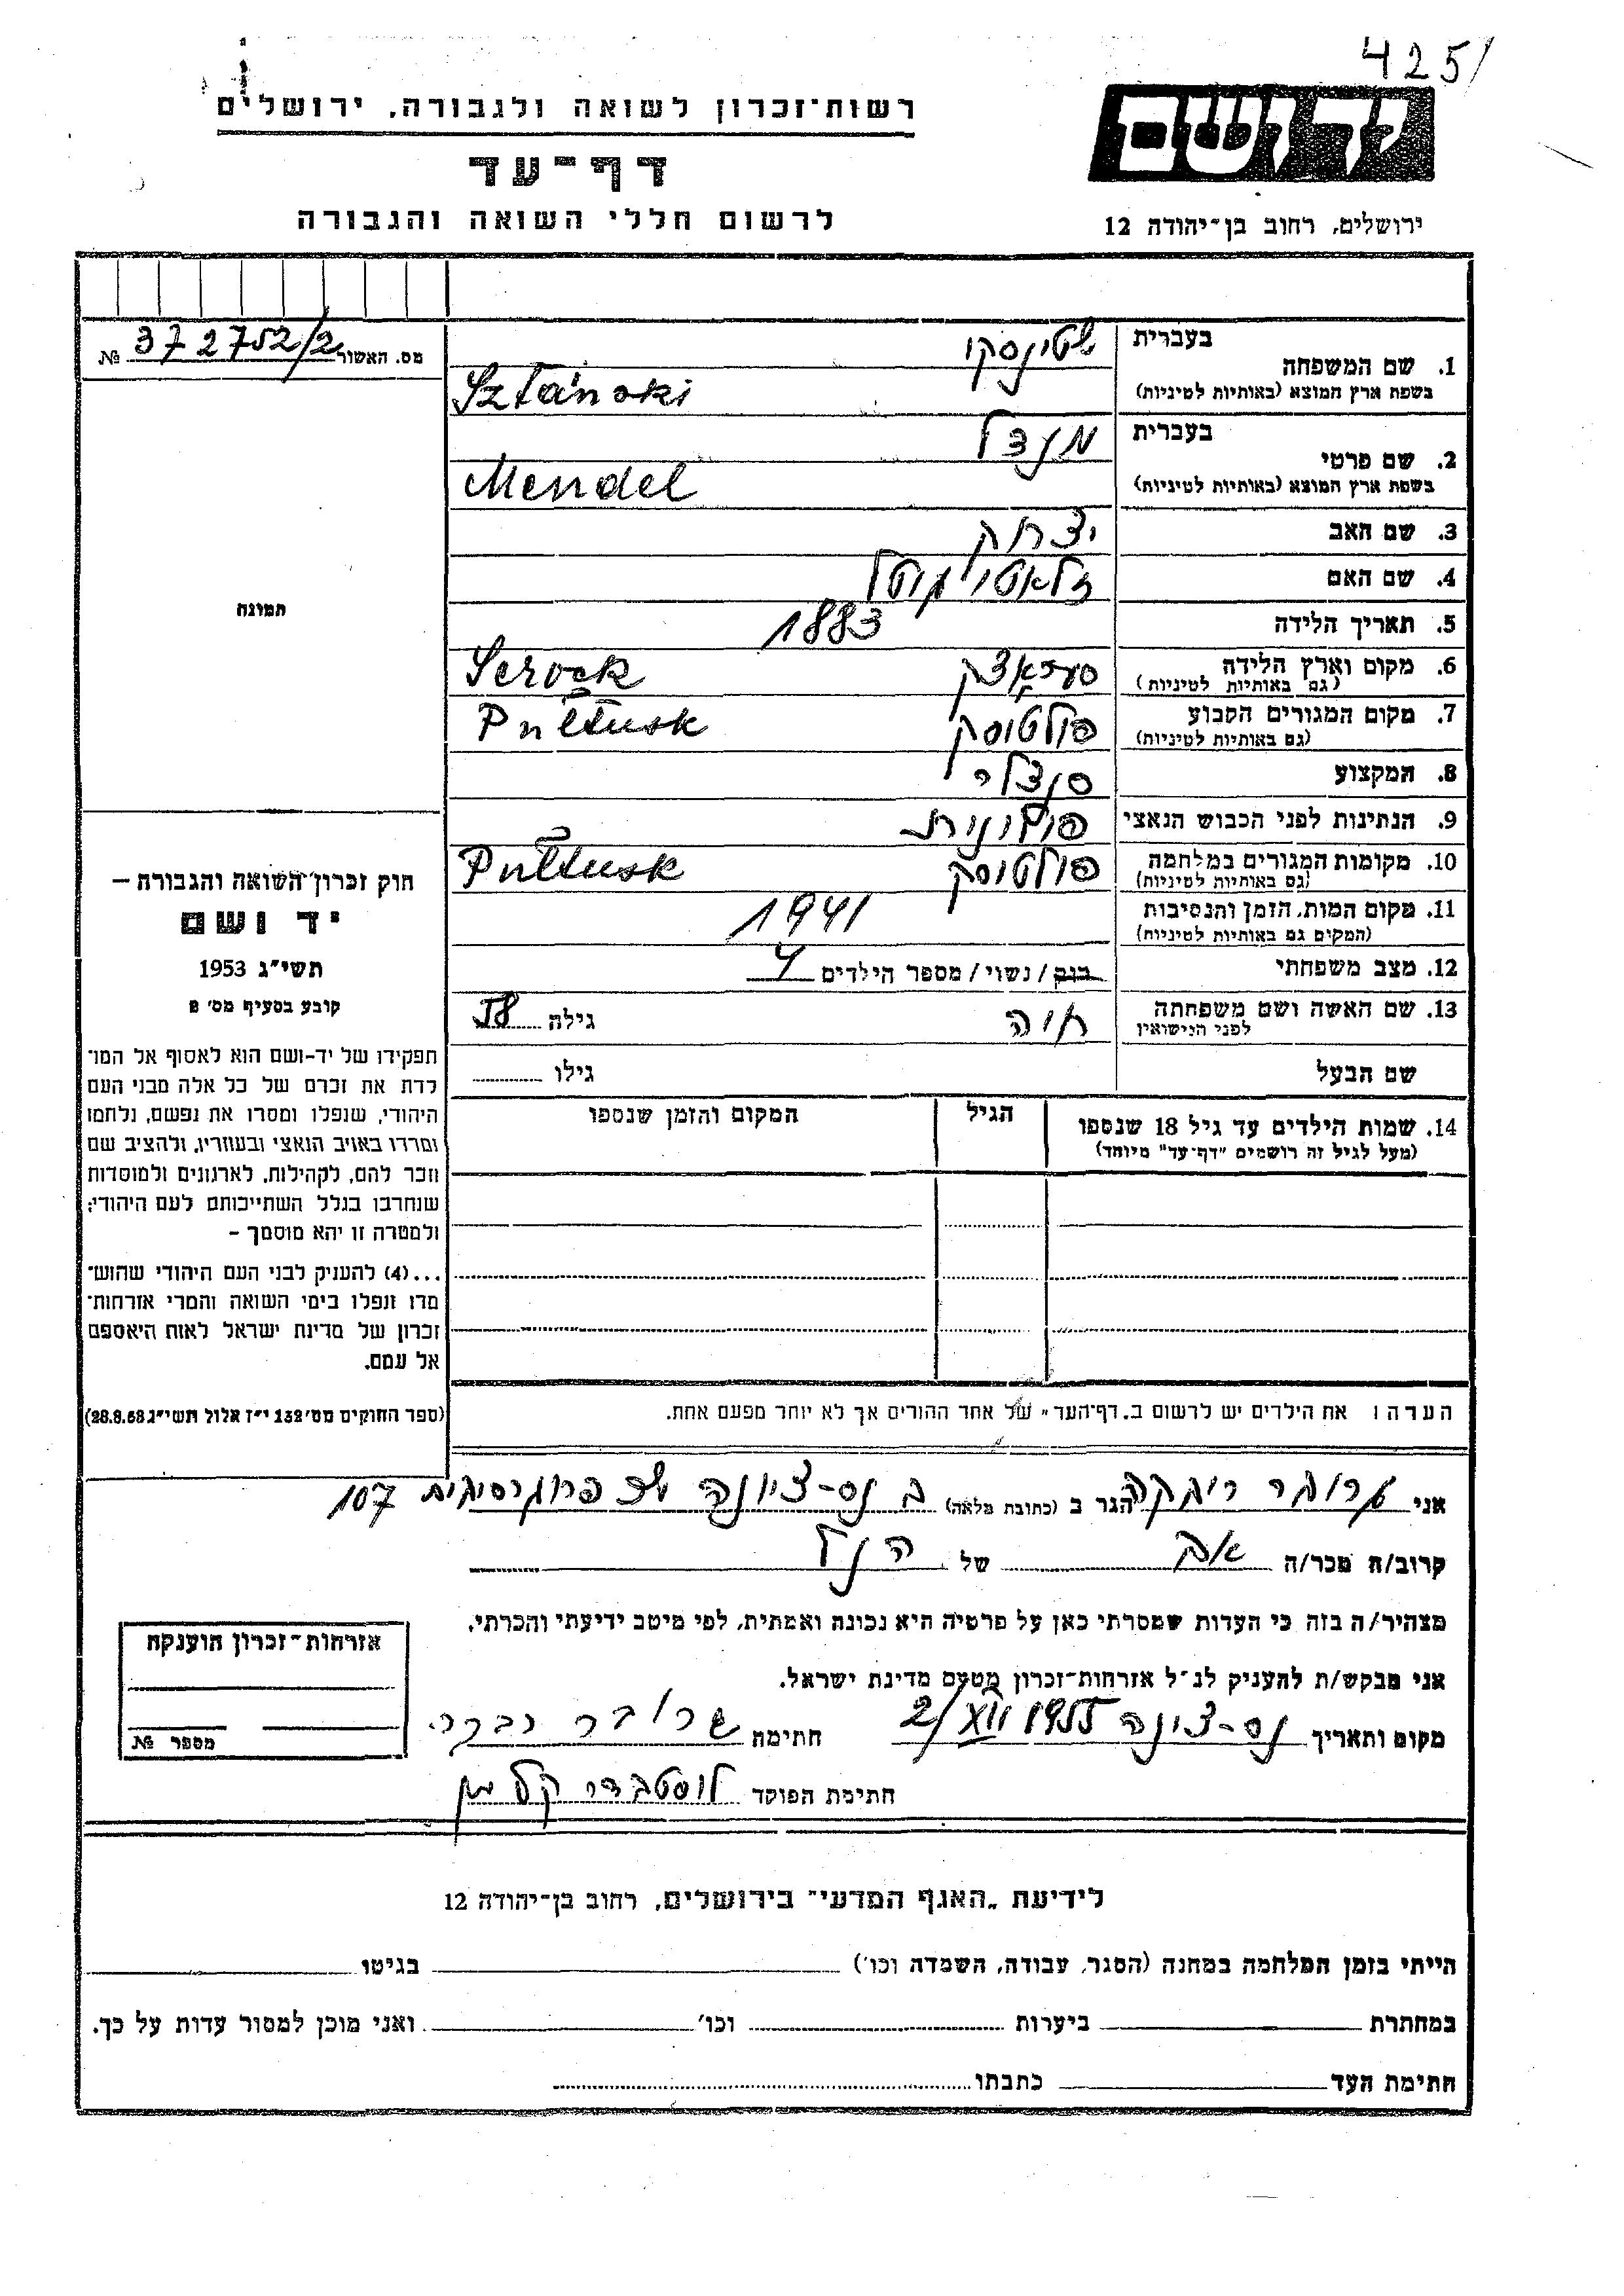 4251
יד ושם
רשות־זכרון לשואה ולגבורה, ירושלים
דף־עד
לרשום חללי השואה והגבורה
ירושלים, רחוב בן־יהודה 12
מס. האשור 372752/2 №
1. שם המשפחה
בעברית שטינסקי
בשפת ארץ המוצא (באותיות לטיניות) Sztański
2. שם פרטי
בעברית מנדל
בשפת ארץ המוצא (באותיות לטיניות) Mendel
3. שם האב יצחק
4. שם האם זלאטי
5. תאריך הלידה 1883
6. מקום וארץ הלידה Serock
(גם באותיות לטיניות)
7. מקום המגורים הקבוע פולטוסק Pułtusk
(גם באותיות לטיניות)
8. המקצוע סנדלר
9. הנתינות לפני הכבוש הנאצי פולונית
10. מקומות המגורים במלחמה פולטוסק Pułtusk
(גם באותיות לטיניות)
11. מקום המות, הזמן והנסיבות 1941
(המקום גם באותיות לטיניות)
12. מצב משפחתי רווק / נשוי / מספר הילדים 4
13. שם האשה ושם משפחתה חיה גילה 58
לפני הנישואין
שם הבעל גילו
14. שמות הילדים עד גיל 18 שנספו הגיל המקום והזמן שנספו
(מעל לגיל זה רושמים "דף־עד" מיוחד)
הערה: את הילדים יש לרשום ב„דף־העד" של אחד ההורים אך לא יותר מפעם אחת.
תמונה
חוק זכרון השואה והגבורה –
יד ושם
תשי"ג 1953
קובע בסעיף מס' 2
תפקידו של יד-ושם הוא לאסוף אל המו־
לדת את זכרם של כל אלה מבני העם
היהודי, שנפלו ומסרו את נפשם, נלחמו
ומרדו באויב הנאצי ובעוזריו, ולהציב שם
וזכר להם, לקהילות, לארגונים ולמוסדות
שנחרבו בגלל השתייכותם לעם היהודי;
ולמטרה זו יהא מוסמך –
...(4) להעניק לבני העם היהודי שהוש־
מדו ונפלו בימי השואה והמרי אזרחות־
זכרון של מדינת ישראל לאות היאספם
אל עמם.
(ספר החוקים מס' 132 י"ז אלול תשי"ג 28.8.53)
אני גרובר רבקה הגר ב (כתובת מלאה) ב נס-ציונה 107
קרוב/ה מכר/ה אב של הנ"ל
מצהיר/ה בזה כי העדות שמסרתי כאן על פרטיה היא נכונה ואמתית, לפי מיטב ידיעתי והכרתי.
אני מבקש/ת להעניק לנ"ל אזרחות־זכרון מטעם מדינת ישראל.
מקום ותאריך נס-ציונה 2/XII 1955 חתימת גרובר רבקה
חתימת הפוקד
אזרחות־זכרון הוענקה
מספר №
לידיעת „האגף המדעי" בירושלים, רחוב בן־יהודה 12
הייתי בזמן המלחמה במחנה (הסגר, עבודה, השמדה וכו') בגיטו
במחתרת ביערות וכו' ואני מוכן למסור עדות על כך.
חתימת העד כתבתו